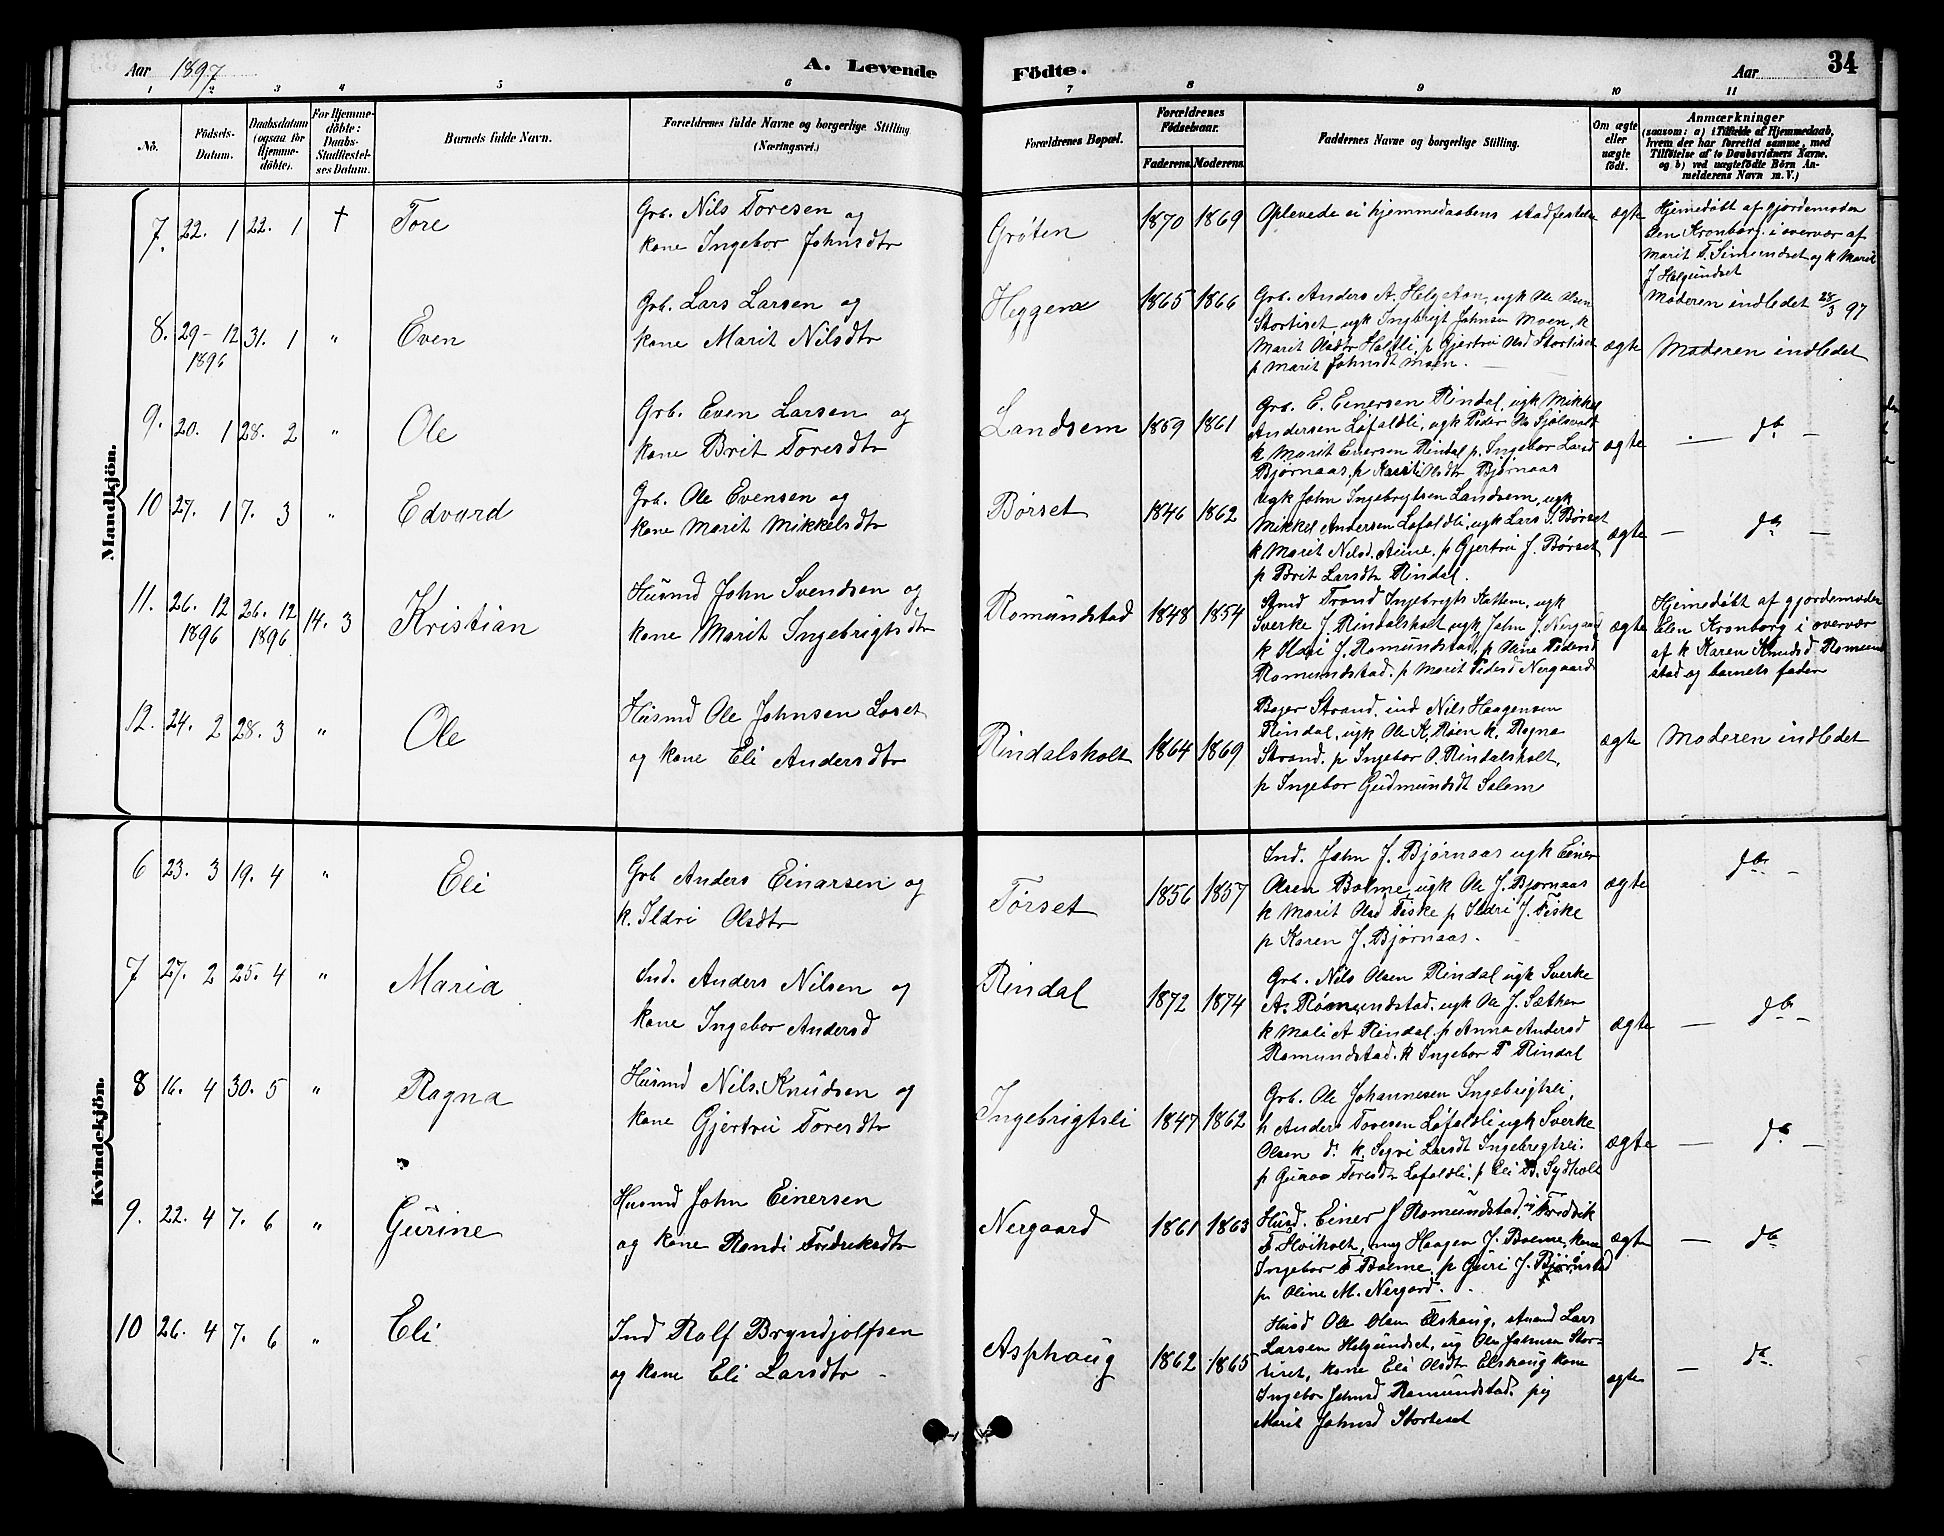 Aar 1897
A. Levende
Födte.
Aar
34
1 2 3 4 5 6 7 8 9 10 11
No.
Födsels-
Datum.
Daabsdatum
(ogsaa for
Hjemme-
döbte).
For Hjemme-
döbte:
Daabs-
Stadfæstel-
ses Datum.
Barnets fulde Navn.
Forældrenes fulde Navne og borgerlige Stilling
(Næringsvei.)
Forældrenes Bopæl.
Forældrenes
Födselsaar.
Faderens. Moderens.
Faddernes Navne og borgerlige Stilling.
Om ægte
eller
uægte
födt.
Anmærkninger
(saasom: a) i Tilfælde af Hjemmedaab,
hvem der har forrettet samme, med
Tilföielse af to Daabsvidners Navne.
og b) ved uægtefödte Börn An-
melderens Navn m. V.)
Mandkjön.
7. 22. 1 22. 1 † Tore
Grb. Nils Toresen og
kone Ingebor Johnsdtr
Grøten 1870 1869
Oplevede ei hjemmedaabens stadfestelse
ægte
Hjemedøbt af gjordemoder
Elen Kronborg i overvær af
Marit T. Simundset og k Marit
J Helgundset
Moderen indledet 28/3 97
8. 29-12 1896 31. 1 " Even
Grb. Lars Larsen og
kone Marit Nilsdtr
Heggem 1865 1866
Grb. Anders A. Helgetun, ugk Ole Olsen
Stortiset ugk Ingebrigt Johnsen Moen, k
Marit Olsdtr Halsli, p Gjertru Olsd Stortiset
p Marit Johnsdt Moen.
ægte Moderen indledet
9. 20. 1 28. 2 " Ole
Grb. Even Larsen og
kone Brit Toresdtr
Landsem 1859 1861
Grb. E. Einersen Rindal, ugk Mikkel
Andersen Løfaldli, ugk Peder Ols Sjølsvolt
k Marit Einersen Rindal p. Ingebor Larsd
Bjørnaas, p Karsti Olsdtr Bjørnaas
ægte — do —
10 27. 1 7. 3 " Edvard
Grb. Ole Evensen og
kone Marit Mikkelsdtr
Børset 1846 1862
Ugk John Ingebrigtsen Landsem, ugk
Mikkel Andersen Løfaldli, ugk Lars J. Børset
k Marit Nilsd. Aune. p Gjertru J. Børset
p Brit Larsdtr Rindal.
ægte — do —
11. 26. 12 1896 26. 12 1896 14. 3 Kristian
Husmd John Svendsen og
kone Marit Ingebrigtsdtr
Romundstad 1848 1854
Smd Trond Ingebrigts Kattem, ugk
Sverke J. Rindalsholt, ugk John J. Nergaard
k Ildri J. Romundstad, p Oline Pedersd
Romundstad. p Marit Pedersd Nergaard
ægte
Hjemedøbt af gjordemoder
Elen Kronborg i overvær
af k Karen Knudsd Romund
stad og barnets fader
12. 24. 2 28. 3 " Ole
Husmd Ole Johnsen Løset
og kone Eli Andersdtr
Rindalsholt 1864 1869
Bojer Strand. ind Nils Haagensen
Rindal, ugk Ole K. Røen k. Ragna
Strand. p Ingebor O. Rindalsholt,
p Ingebor Gudmundsdt Solem
ægte Moderen indledet
Kvindekjön.
6 23. 3 19. 4 " Eli
Grb Anders Einarsen og
k. Ildri Olsdtr
Tørset 1856 1857
Ind. John J. Bjørnaas ugk Einer
Olsen Bolme, ugk Ole J. Bjørnaas
k Marit Olsd Fiske p Ildri J. Fiske
p Karen J. Bjørnaas.
ægte do —
7 27. 2 25. 4 " Maria
Ind. Anders Nilsen og
kone Ingebor Andersd
Rindal 1872 1874
Grb. Nils Olsen Rindal ugk Sverke
A. Romundstad. ugk Ole J. Sæther
k Mali A Rindal. p Anna Andersd
Romundstad. k Ingebor T Rindal
ægte — do —
8 16. 4 30. 5 " Ragna
Husmd Nils Knudsen og
kone Gjertru Toresdtr
"
Ingebrigtsli 1847 1862
Grb. Ole Johannesen Ingebrigtsli,
p Anders Toresen Løfaldli ugk Sverke
Olsen do k. Segri Larsdt Ingebrigtsli.
p Guroa Toresdtr Løfaldli, p Eli B. Sydholt
ægte — do —
9. 22. 4 7. 6 " Gurine
Husmd John Einersen
og kone Randi Fredriksdtr
Nergaard 1861 1863
Husd. Einer J Romundstad, Fredrik
F Hviholt, ung Haagen J. Bolme, kone
Ingebor F Bolme. p Guri J. Bjørnstad
p. Oline M. Nergard.
ægte — do
10 26. 4 7. 6 " Eli
Ind Rolf Bryndjolfsen
og kone Eli Larsdtr
Asphaug 1862 1865
Husd Ole Olsen Elshaug, strand Lars
Larsen Helgundset, ug Ole Johnsen Stor-
tiset, kone Eli Olsdtr Elshaug kone
Ingebor Johnsd Romundstad pig
Marit Johnsd Stortiset
ægte — do